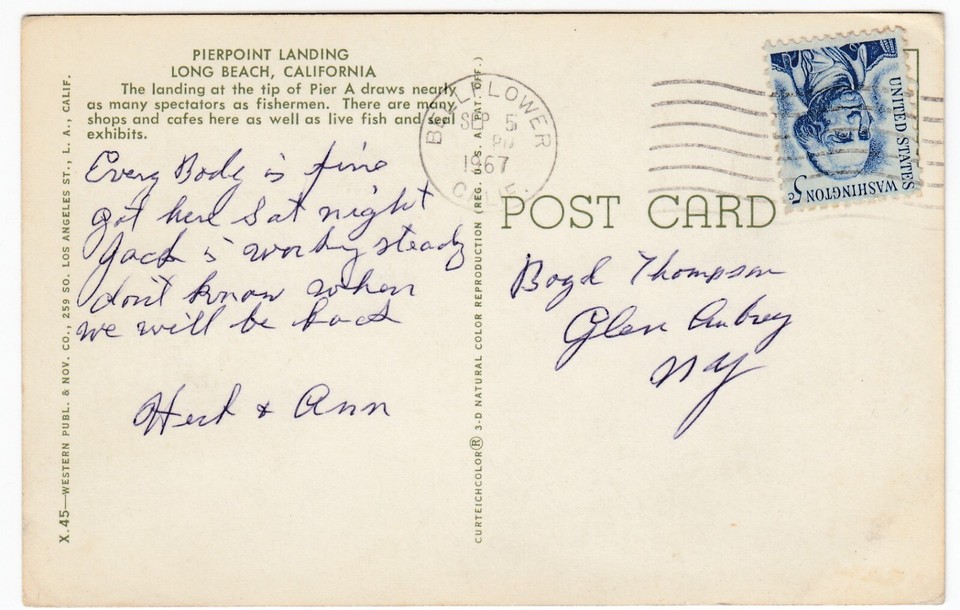 PIERPOINT LANDING
LONG BEACH, CALIFORNIA
The landing at the tip of Pier A draws nearly
as many spectators as fishermen. There are many
shops and cafes here as well as live fish and seal
exhibits.
Every Body is fine
got here Sat night
Jack is working steady
don't know when
we will be back
Herb & Ann
X.45—WESTERN PUBL. & NOV. CO., 259 SO. LOS ANGELES ST., L. A., CALIF.
CURTEICHCOLOR® 3-D NATURAL COLOR REPRODUCTION (REG. U.S.A. PAT. OFF.)
BELLFLOWER
SEP 5
PM
1967
CALIF.
UNITED STATES
WASHINGTON
5c
POST CARD
Boyd Thompson
Glen Aubrey
NY